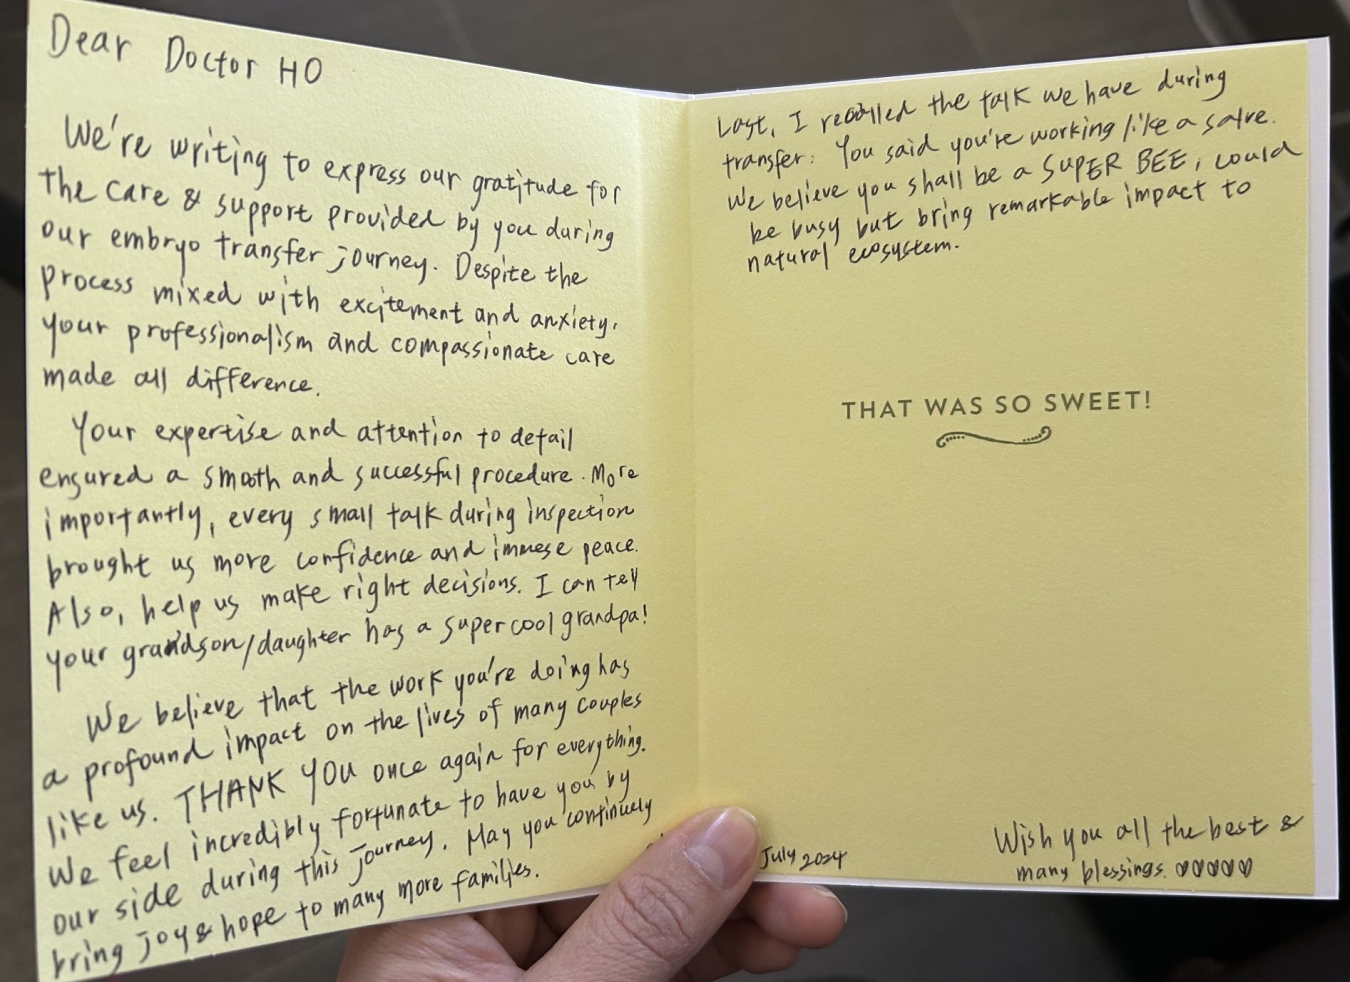 Dear Doctor HO
We're writing to express our gratitude for
the care & support provided by you during
our embryo transfer journey. Despite the
process mixed with excitement and anxiety,
your professionalism and compassionate care
made all difference.
Your expertise and attention to detail
ensured a smooth and successful procedure. More
importantly, every small talk during inspection
brought us more confidence and immese peace.
Also, help us make right decisions. I can tell
your grandson/daughter has a super cool grandpa!
We believe that the work you're doing has
a profound impact on the lives of many couples
like us. THANK YOU once again for everything.
We feel incredibly fortunate to have you by
our side during this journey. May you continuely
bring joy & hope to many more families.
Last, I recalled the talk we have during
transfer: You said you're working like a salve.
We believe you shall be a SUPER BEE, could
be busy but bring remarkable impact to
natural ecosystem.
THAT WAS SO SWEET!
Wish you all the best &
many blessings. ♡♡♡♡♡
July 2024